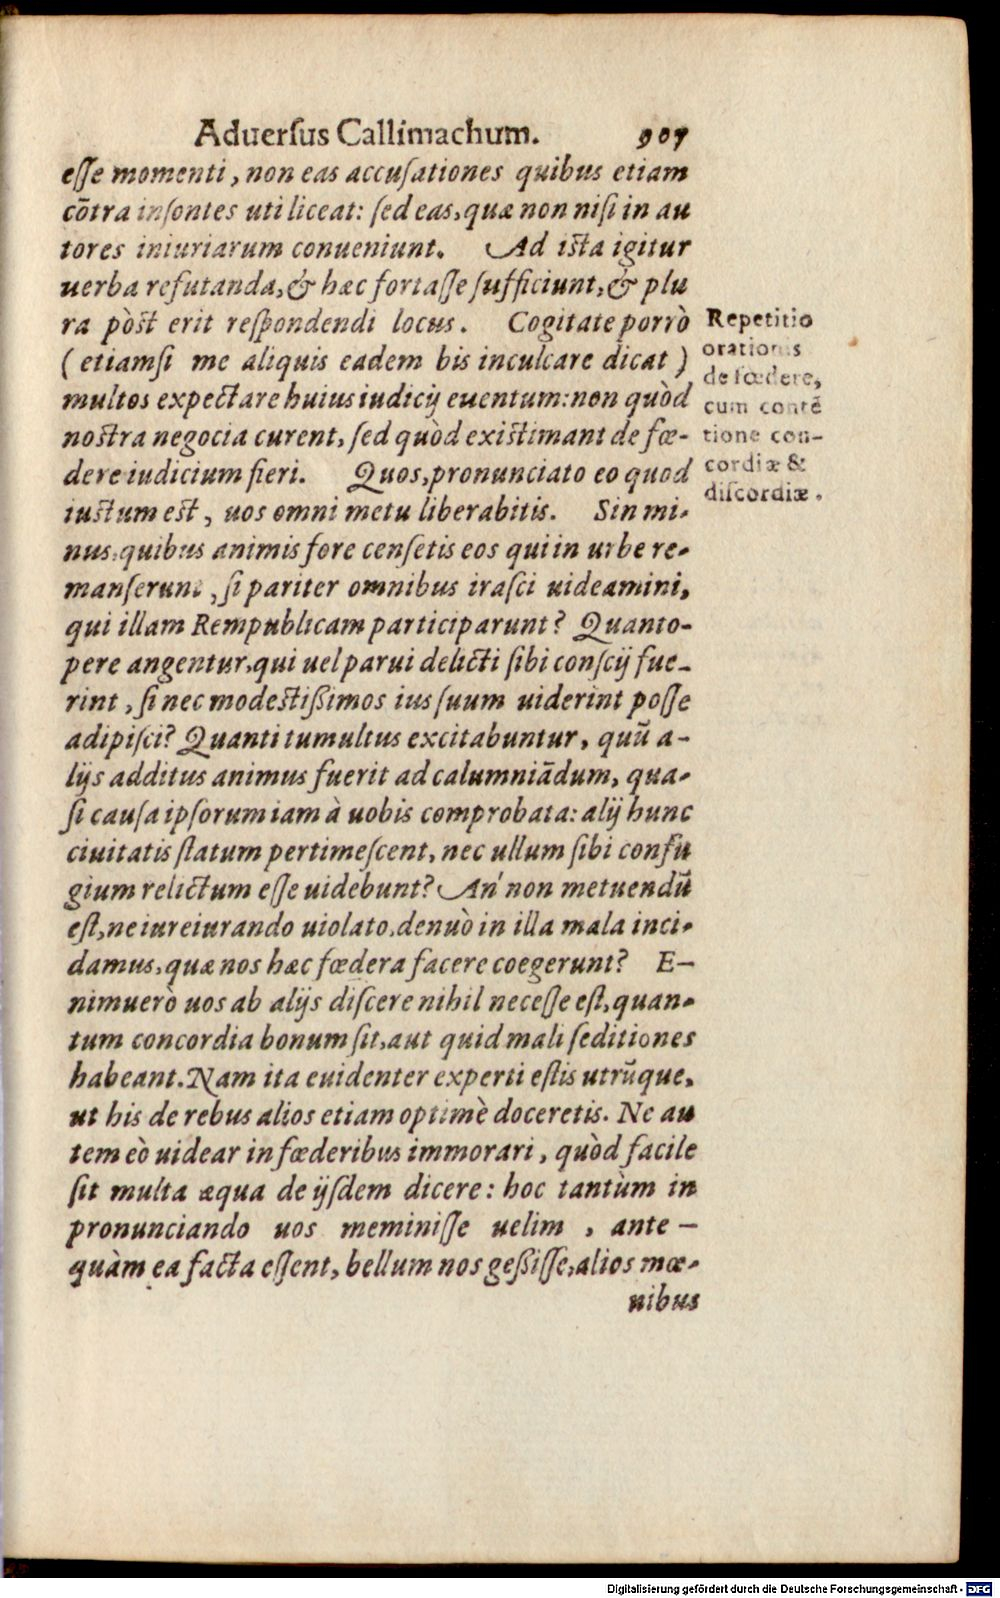 Aduerſus Callimachum. 907
eſſe momenti, non eas accuſationes quibus etiam
cōtra inſontes uti liceat: ſed eas, quæ non niſi in au
tores iniuriarum conueniunt. Ad iſta igitur
uerba refutanda, & hæc fortaſſe ſufficiunt, & plu
ra pòſt erit reſpondendi locus. Cogitate porrò
(etiamſi me aliquis eadem bis inculcare dicat)
multos expectare huius iudicij euentum: non quòd
noſtra negocia curent, ſed quòd exiſtimant de fœ-
dere iudicium fieri. Quos, pronunciato eo quod
iuſtum eſt, uos omni metu liberabitis. Sin mi-
nus, quibus animis fore cenſetis eos qui in urbe re-
manſerunt, ſi pariter omnibus iraſci uideamini,
qui illam Rempublicam participarunt? Quanto-
pere angentur, qui uel parui delicti ſibi conſcij fue-
rint, ſi nec modeſtißimos ius ſuum uiderint poſſe
adipiſci? Quanti tumultus excitabuntur, quū a-
lijs additus animus fuerit ad calumniādum, qua-
ſi cauſa ipſorum iam à uobis comprobata: alij hunc
ciuitatis ſtatum pertimeſcent, nec ullum ſibi confu
gium relictum eſſe uidebunt? An' non metuendū
eſt, ne iureiurando uiolato, denuò in illa mala inci-
damus, quæ nos hæc fœdera facere coegerunt? E-
nimuerò uos ab alijs diſcere nihil neceſſe eſt, quan-
tum concordia bonum ſit, aut quid mali ſeditiones
habeant. Nam ita euidenter experti eſtis utrūque,
ut his de rebus alios etiam optimè doceretis. Ne au
tem eò uidear in fœderibus immorari, quòd facile
ſit multa æqua de ijſdem dicere: hoc tantùm in
pronunciando uos meminiſſe uelim, ante-
quàm ea facta eſſent, bellum nos geßiſſe, alios mœ-
nibus
Repetitio
orationis
de fœdere,
cum contē
tione con-
cordiæ &
diſcordiæ.
Digitalisierung gefördert durch die Deutsche Forschungsgemeinschaft - DFG